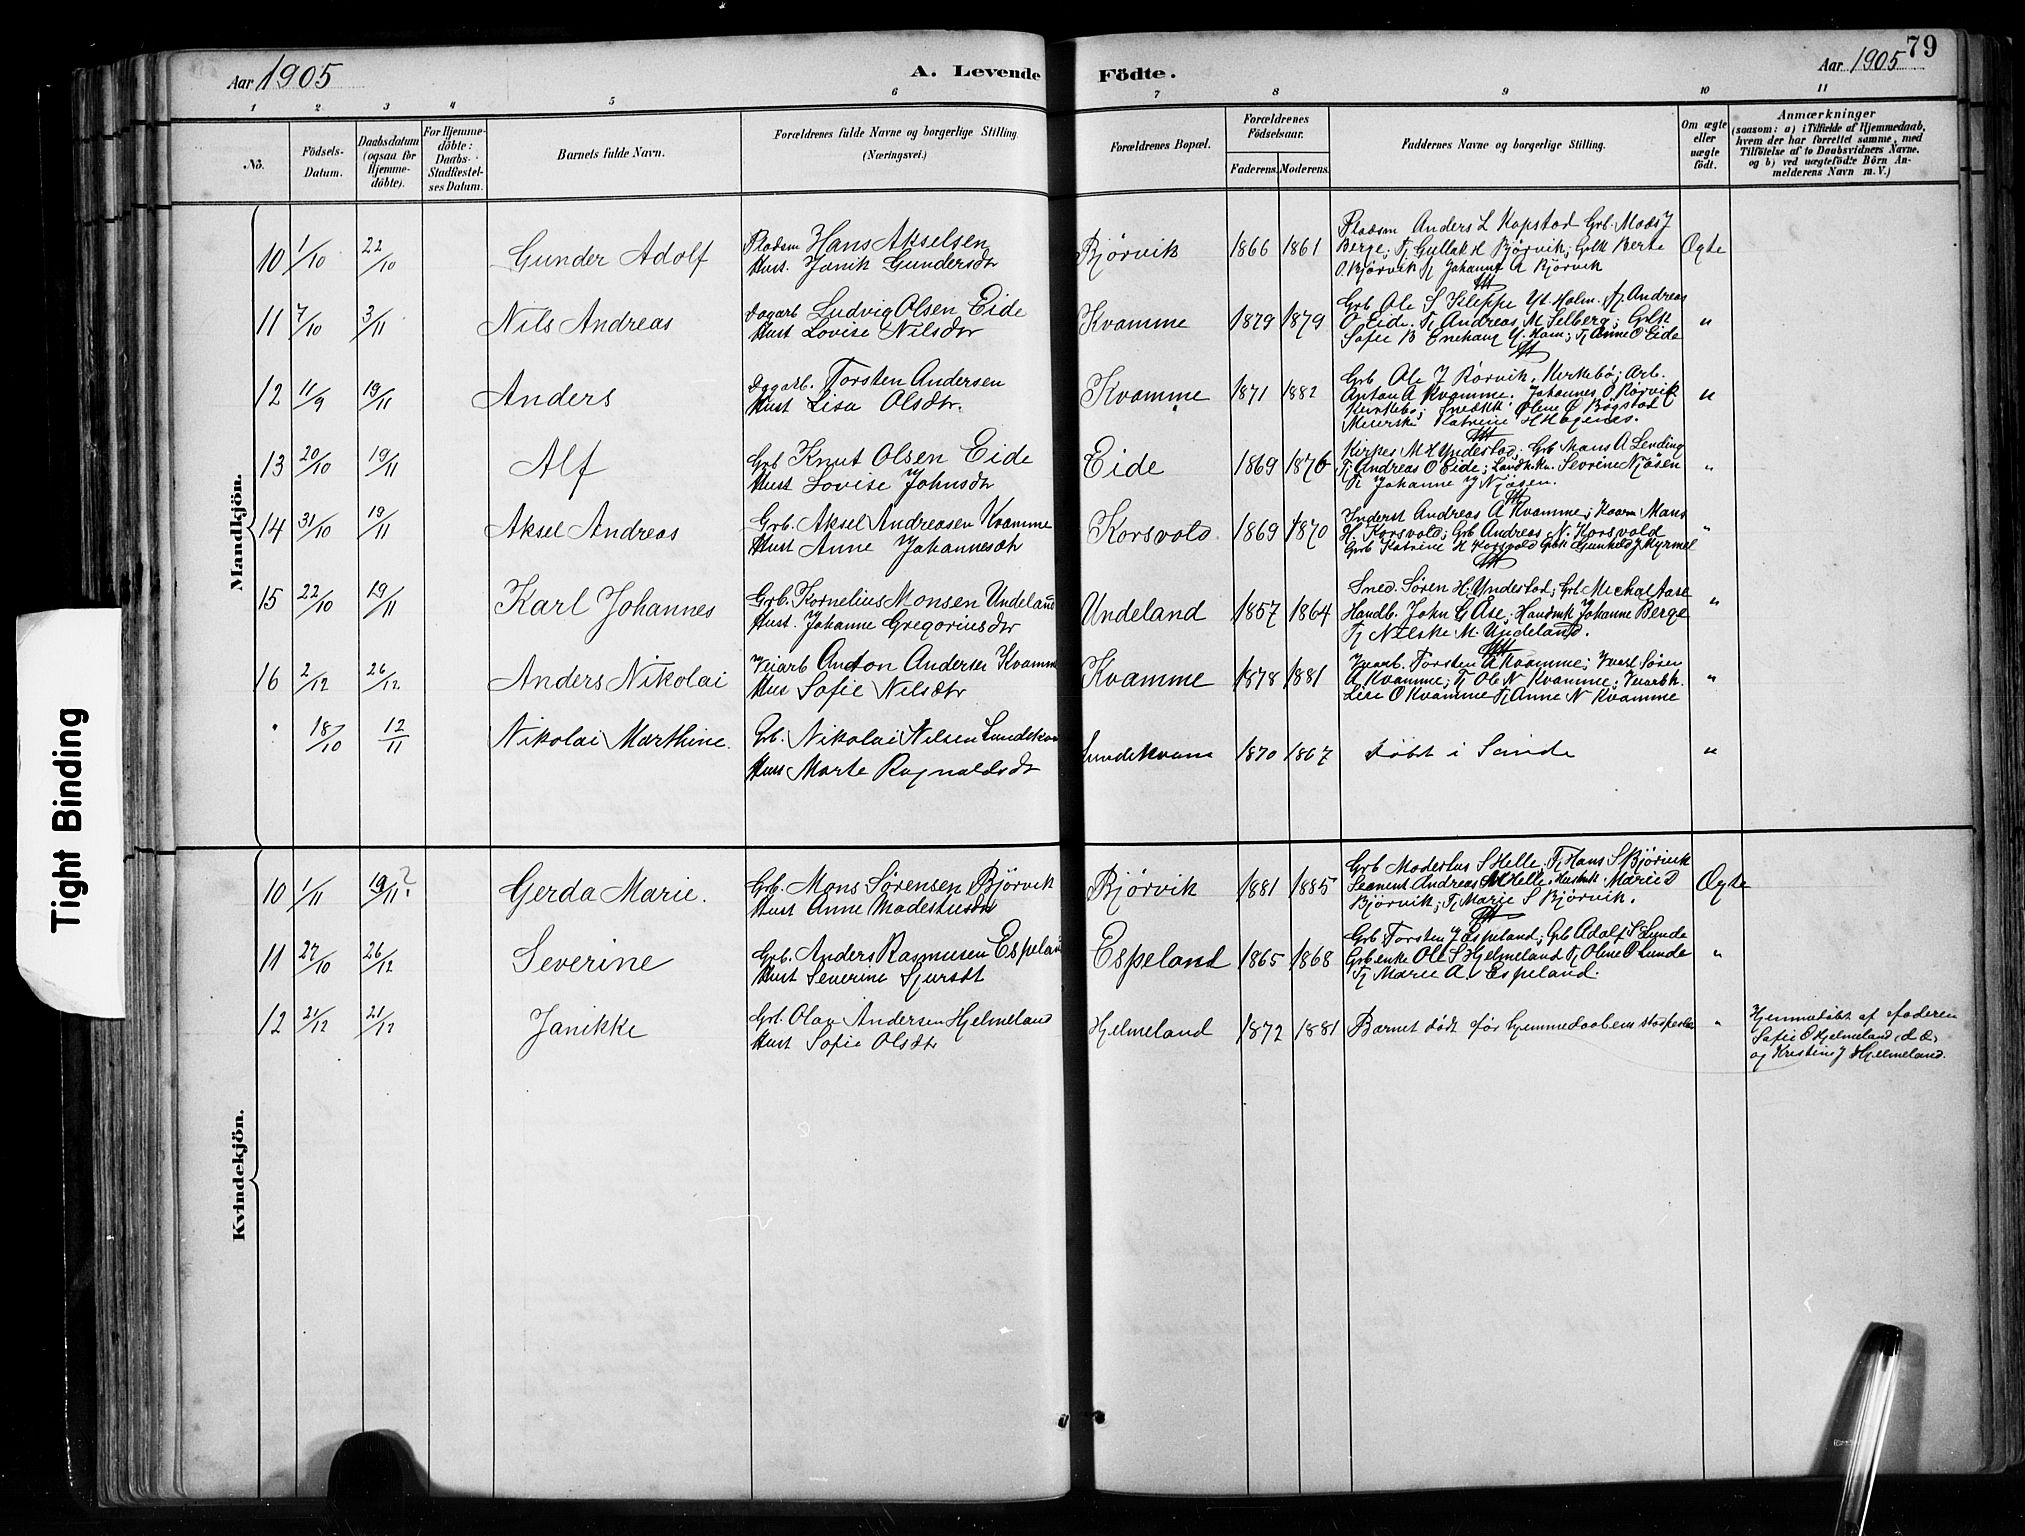 79
Aar 1905
A. Levende Födte.
Aar 1905
1 2 3 4 5 6 7 8 9 10 11
No.
Födsels-Datum.
Daabsdatum (ogsaa for Hjemme-döbte).
For Hjemme-döbte: Daabs-Stadfæstel-ses Datum.
Barnets fulde Navn.
Forældrenes fulde Navne og borgerlige Stilling. (Næringsvei.)
Forældrenes Bopæl.
Forældrenes Födselsaar.
Faderens. Moderens.
Faddernes Navne og borgerlige Stilling.
Om ægte eller uægte födt.
Anmærkninger
(saasom: a) i Tilfælde af Hjemmedaab, hvem der har forrettet samme, med Tilföielse af to Daabsvidners Navne, og b) ved uægtefödte Börn Anmelderens Navn m. V.)
Mandkjön.
10 1/10 22/10 Gunder Adolf
Pladsm Hans Akselsen
Hust. Janik Gundersdtr
Bjørvik 1866 1861
Pladsm Anders L Kopstad Grb. Mads J
Berge; Tj Gullak H Bjørvik; Grbk Berte
O. Bjørvik Tj Johanne A Bjørvik
Ægte
11 7/10 3/11 Nils Andreas
Dagarb Ludvig Olsen Eide
Hust Lovise Nilsdtr
Kvamme 1879 1879
Grb Ole S Kleppe Yt. Holm. Tj. Andreas
O Eide. Tj Andreas M Selberg; Grbk
Sofie B Tj Anne O Eide
"
12 11/9 19/11 Anders
Dagarb. Torsten Andersen
Hust Lisa Olsdtr.
Kvamme 1871 1882
Grb Ole J Rørvik, Kirkebø; Arb.
Anton A Kvamme. Johannes O. Rørvik
Kirkebø; Snedkk Oline O Bøgstad
Katrine
"
13 20/10 19/11 Alf
Grb Knut Olsen Eide
Hust Lovise Johnsdtr
Eide 1869 1876
Kirkes M H Yndestad; Grb Mons A Lending
Tj Andreas O Eide; Landhk. Severine Njøsen
Tj Johanne J Njøsen.
"
14 31/10 19/11 Aksel Andreas
Grb. Aksel Andreasen Kvamme
Hust Anne Johannesdtr
Korsvold 1869 1870
Inderst Andreas A Kvamme; Kaarm Mans
H. Korsvold; Grb Andreas N. Korsvold
Grb Katrine H Korsvold Grbk Gunhild J Myrmel
"
15 22/10 19/11 Karl Johannes
Grb. Kornelius Monsen Undeland
Hust. Johanne Gregoriusdtr
Undeland 1857 1864
Sned. Søren H. Yndestad; Grb Michal Aase
Handb. John G Åse; Handmk Johanne Berge
Tj Nilske M. Undeland.
"
16 2/12 26/12 Anders Nikolai
Veiarb Anton Andersen Kvamme
Hus Sofie Nilsdtr
Kvamme 1878 1881
Veiarb. Torsten A Kvamme; Søren
A Kvamme; Tj Ole N Kvamme; Veiarbk.
Lise O Kvamme Tj Anne N Kvamme
"
" 18/10 12/11 Nikolai Marthine.
Grb. Nikolai Nilsen Sundekvam
Hust Marte Ragnaldsdtr
Sundekvam 1870 1867
Døbt i Sande
"
Kvindekjön.
10 1/11 19/11? Gerda Marie.
Grb. Mons Sørensen Bjørvik
Hust Anne Modestusdtr
Bjørvik 1881 1885
Grb Modestus S Helle. Tj Hans S Bjørvik
Semint Andreas M Helle; Husmk Marie D
Bjørvik; Tj Marie S Bjørvik.
Ægte
11 27/10 26/12 Severine
Grb. Anders Rasmusen Espeland
Hust Severine Sjursdt
Espeland 1865 1868
Grb. Torsten J Espeland; Grb Adolf S Lunde
Grbenke Ole S Hjelmeland Tj Oline O Lunde
Tj Marie A. Espeland.
"
12 21/12 21/12 Janikke
Grb. Olav Andersen Hjelmeland
Hust Sofie Olsdtr
Hjelmeland 1872 1881
Barnet død før hjemmedaabens stadfestelse
"
Hjemmedøbt af faderen
Sofie O Hjelmeland
og Kristine J Hjelmeland.
Tight Binding